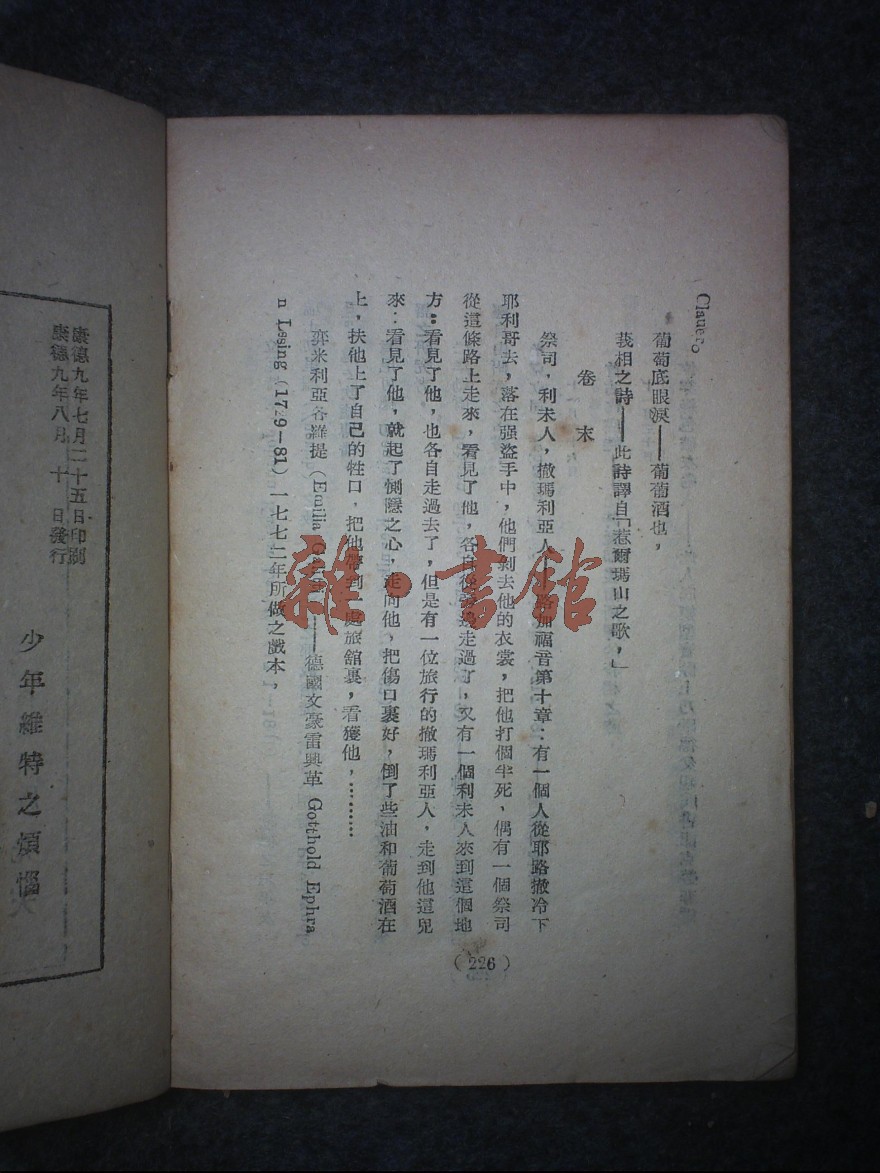 Clauero
葡萄底眼淚——葡葡酒也，
莪相之詩——此詩譯自「惹爾瑪山之歌，」
卷末
祭司，利未人，撒瑪利亞人 加福音第十章：有一個人從耶路撒冷下
耶利哥去，落在强盜手中，他們剥去他的衣裳，把他打個半死，偶有一個祭司
從這條路上走來，看見了他，各自從 邊走過了，又有一個利未人來到這個地
方：看見了他，也各自走過去了，但是有一位旅行的撒瑪利亞人，走到他這兒
來：看見了他，就起了惻隱之心，走向他，把傷口裹好，倒了些油和葡萄酒在
上，扶他上了自己的牲口，把他帶到一處旅舘裏，看獲他，………
弈米利亞各羅提（Emilia ——德國文豪雷興革 Gotthold Ephra
n Lesing (1729—81) 一七七二年所做之戲本，
(226)
雜·書舘
康德九年七月二十五日印刷
康德九年八月十日發行
少年維特之煩惱